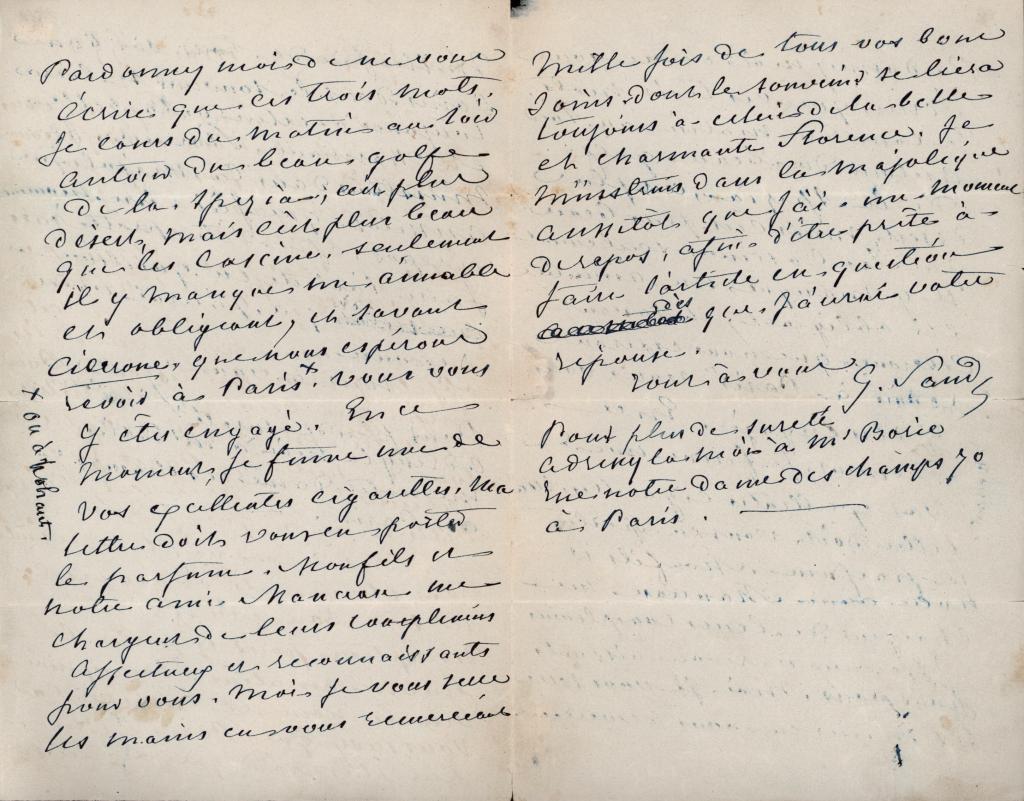 Pardonnez moi de ne vous
écrire que ces trois mots.
Je cours du matin au soir
autour du beau golfe
de la Spezia, c'est plus
désert, mais c'est plus beau
que les Cascine. seulement
il y manque un aimable
et obligeant, et savant
Cicerone, que nous espérons
revoir à Paris x. vous vous
y êtes engagé. En ce
moment, je fume une de
vos excellentes cigarettes, ma
lettre doit vous en porter
le parfum. Mon fils et
notre ami Manceau me
chargent de leurs complimens
affectueux et reconnaissants
pour vous. Moi je vous serre
les mains en vous remerciant
x ou à Nohant.
mille fois de tous vos bons
soins dont le souvenir se liera
toujours à celui de la belle
et charmante Florence. Je
m'instruis dans la majolique
aussitôt que j'ai un moment
de repos, afin d'être prête à
faire l'article en question
dès que j'aurai votre
réponse.
tout à vous
G. Sand
Pour plus de sureté
adressez la moi à Mr Borie
rue notre dame des champs 70
à Paris.